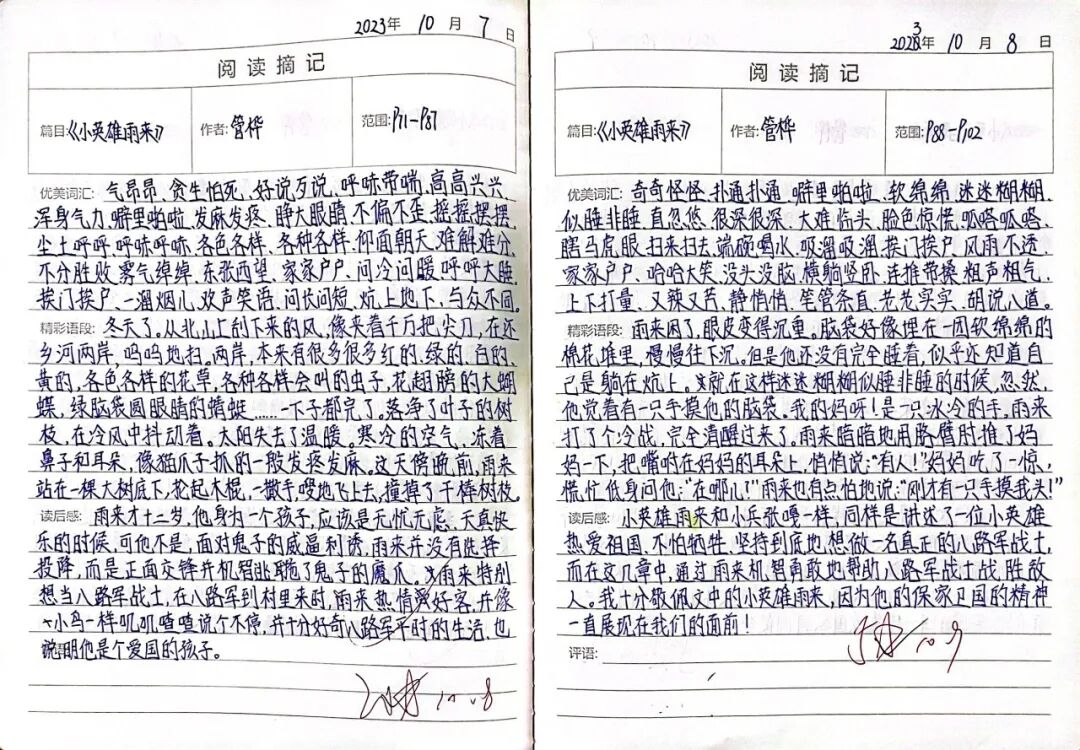 2023年 10 月 7 日
阅读摘记
篇目:《小英雄雨来》 作者:管桦 范围:P71-P87
优美词汇: 气昂昂、贪生怕死、好说歹说、呼哧带喘、高高兴兴
浑身气力、噼里啪啦、发麻发疼、睁大眼睛、不偏不歪、摇摇摆摆、
尘土呼呼、呼哧呼哧、各色各样、各种各样、仰面朝天、难解难分、
不分胜败、雾气绰绰、东张西望、家家户户、问冷问暖、呼呼大睡、
挨门挨户、一溜烟儿、欢声笑语、问长问短、炕上地下、与众不同。
精彩语段: 冬天了。从北山上刮下来的风,像夹着千万把尖刀,在还
乡河两岸,呜呜地扫。两岸,本来有很多很多红的、绿的、白的、
黄的,各色各样的花草,各种各样会叫的虫子,花翅膀的大蝴
蝶,绿脑袋圆眼睛的蜻蜓……一下子都完了。落净了叶子的树
枝,在冷风中抖动着。太阳失去了温暖。寒冷的空气,冻着
鼻子和耳朵,像猫爪子抓的一般发疼发麻。这天傍晚前,雨来
站在一棵大树底下,抡起木棍,一撒手,嗖地飞上去,撞掉了干棒树枝。
读后感: 雨来才十二岁,他身为一个孩子,应该是无忧无虑、天真快
乐的时候,可他不是,面对鬼子的威逼利诱,雨来并没有选择
投降,而是正面交锋并机智逃脱了鬼子的魔爪。雨来特别
想当八路军战士,在八路军到村里来时,雨来热情好客,并像
个小鸟一样叽叽喳喳说个不停,并十分好奇八路军平时的生活,也
说明他是个爱国的孩子。
10.8
2023年 10 月 8 日
阅读摘记
篇目:《小英雄雨来》 作者:管桦 范围:P88-P102
优美词汇: 奇奇怪怪、扑通扑通、噼里啪啦、软绵绵、迷迷糊糊、
似睡非睡、直忽悠、很深很深、大难临头、脸色惊慌、呱嗒呱嗒、
瞎马虎眼、扫来扫去、端碗喝水、吸溜吸溜、挨门挨户、风雨不透、
家家户户、哈哈大笑、没头没脑、横躺竖卧、连推带搡、粗声粗气、
上下打量、又辣又苦、静悄悄、笔管条直、老老实实、胡说八道。
精彩语段: 雨来困了,眼皮变得沉重。脑袋好像埋在一团软绵绵的
棉花堆里,慢慢往下沉。但是他还没有完全睡着,似乎还知道自
己是躺在炕上。就在这样迷迷糊糊似睡非睡的时候,忽然,
他觉着有一只手摸他的脑袋。我的妈呀!是一只冰冷的手。雨来
打了个冷战,完全清醒过来了。雨来暗暗地用胳臂肘推了妈
妈一下,把嘴附在妈妈的耳朵上,悄悄说:“有人!”妈妈吃了一惊,
慌忙低身问他:“在哪儿!”雨来也有点怕地说:“刚才有一只手摸我头!”
读后感: 小英雄雨来和小兵张嘎一样,同样是讲述了一位小英雄
热爱祖国、不怕牺牲、坚持到底地想做一名真正的八路军战士,
而在这几章中,通过雨来机智勇敢地帮助八路军战士战胜敌
人。我十分敬佩文中的小英雄雨来,因为他的保家卫国的精神
一直展现在我们的面前!
评语: 10.9